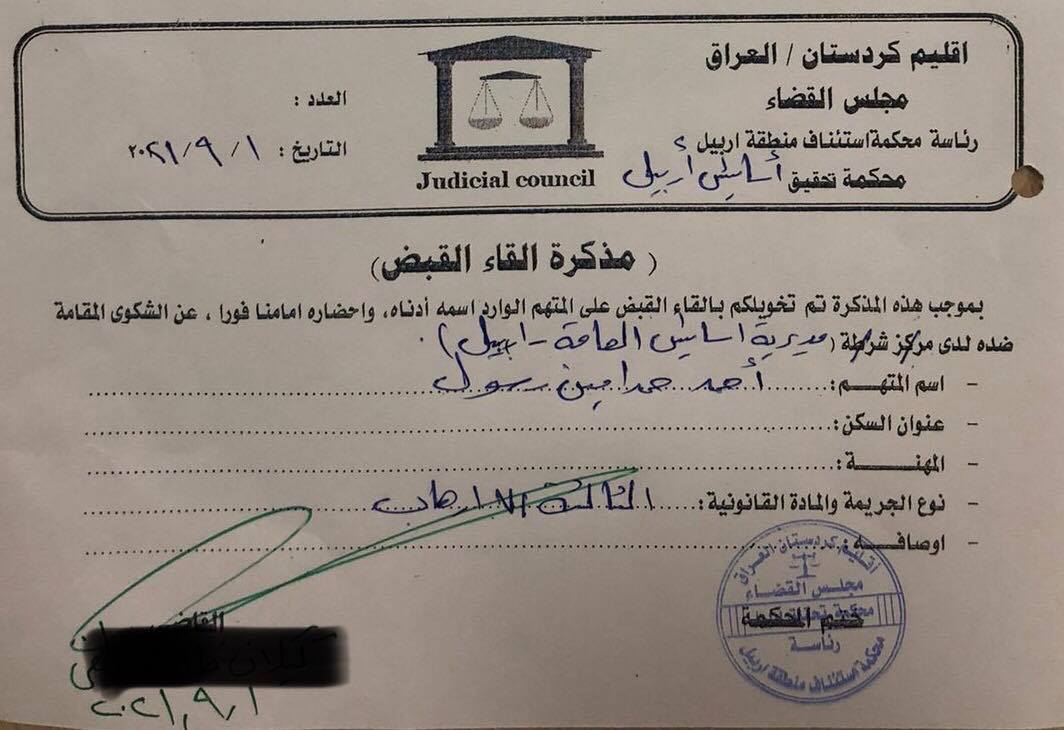 اقليم كردستان / العراق
مجلس القضاء
رئاسة محكمة استئناف منطقة اربيل
محكمة تحقيق أسايش أربيل
العدد :
التاريخ : ٢٠٢١/٩/١
Judicial council
( مذكرة القاء القبض)
بموجب هذه المذكرة تم تخويلكم بالقاء القبض على المتهم الوارد اسمه أدناه، واحضاره امامنا فورا ، عن الشكوى المقامة
ضده لدى مركز شرطة (مديرية اسايش العامة - اربيل) .
- اسم المتهم : أحمد حمدامين رسول
- عنوان السكن :
- المهنــــة :
- نوع الجريمة والمادة القانونية : الثالثة الارهاب
- اوصافـــه :
أقليم كردستان العراق
مجلس القضاء
محكمة
ختم المحكمة
رئاسة
محكمة استئناف منطقة اربيل
القاضي
٢٠٢١,٩,١